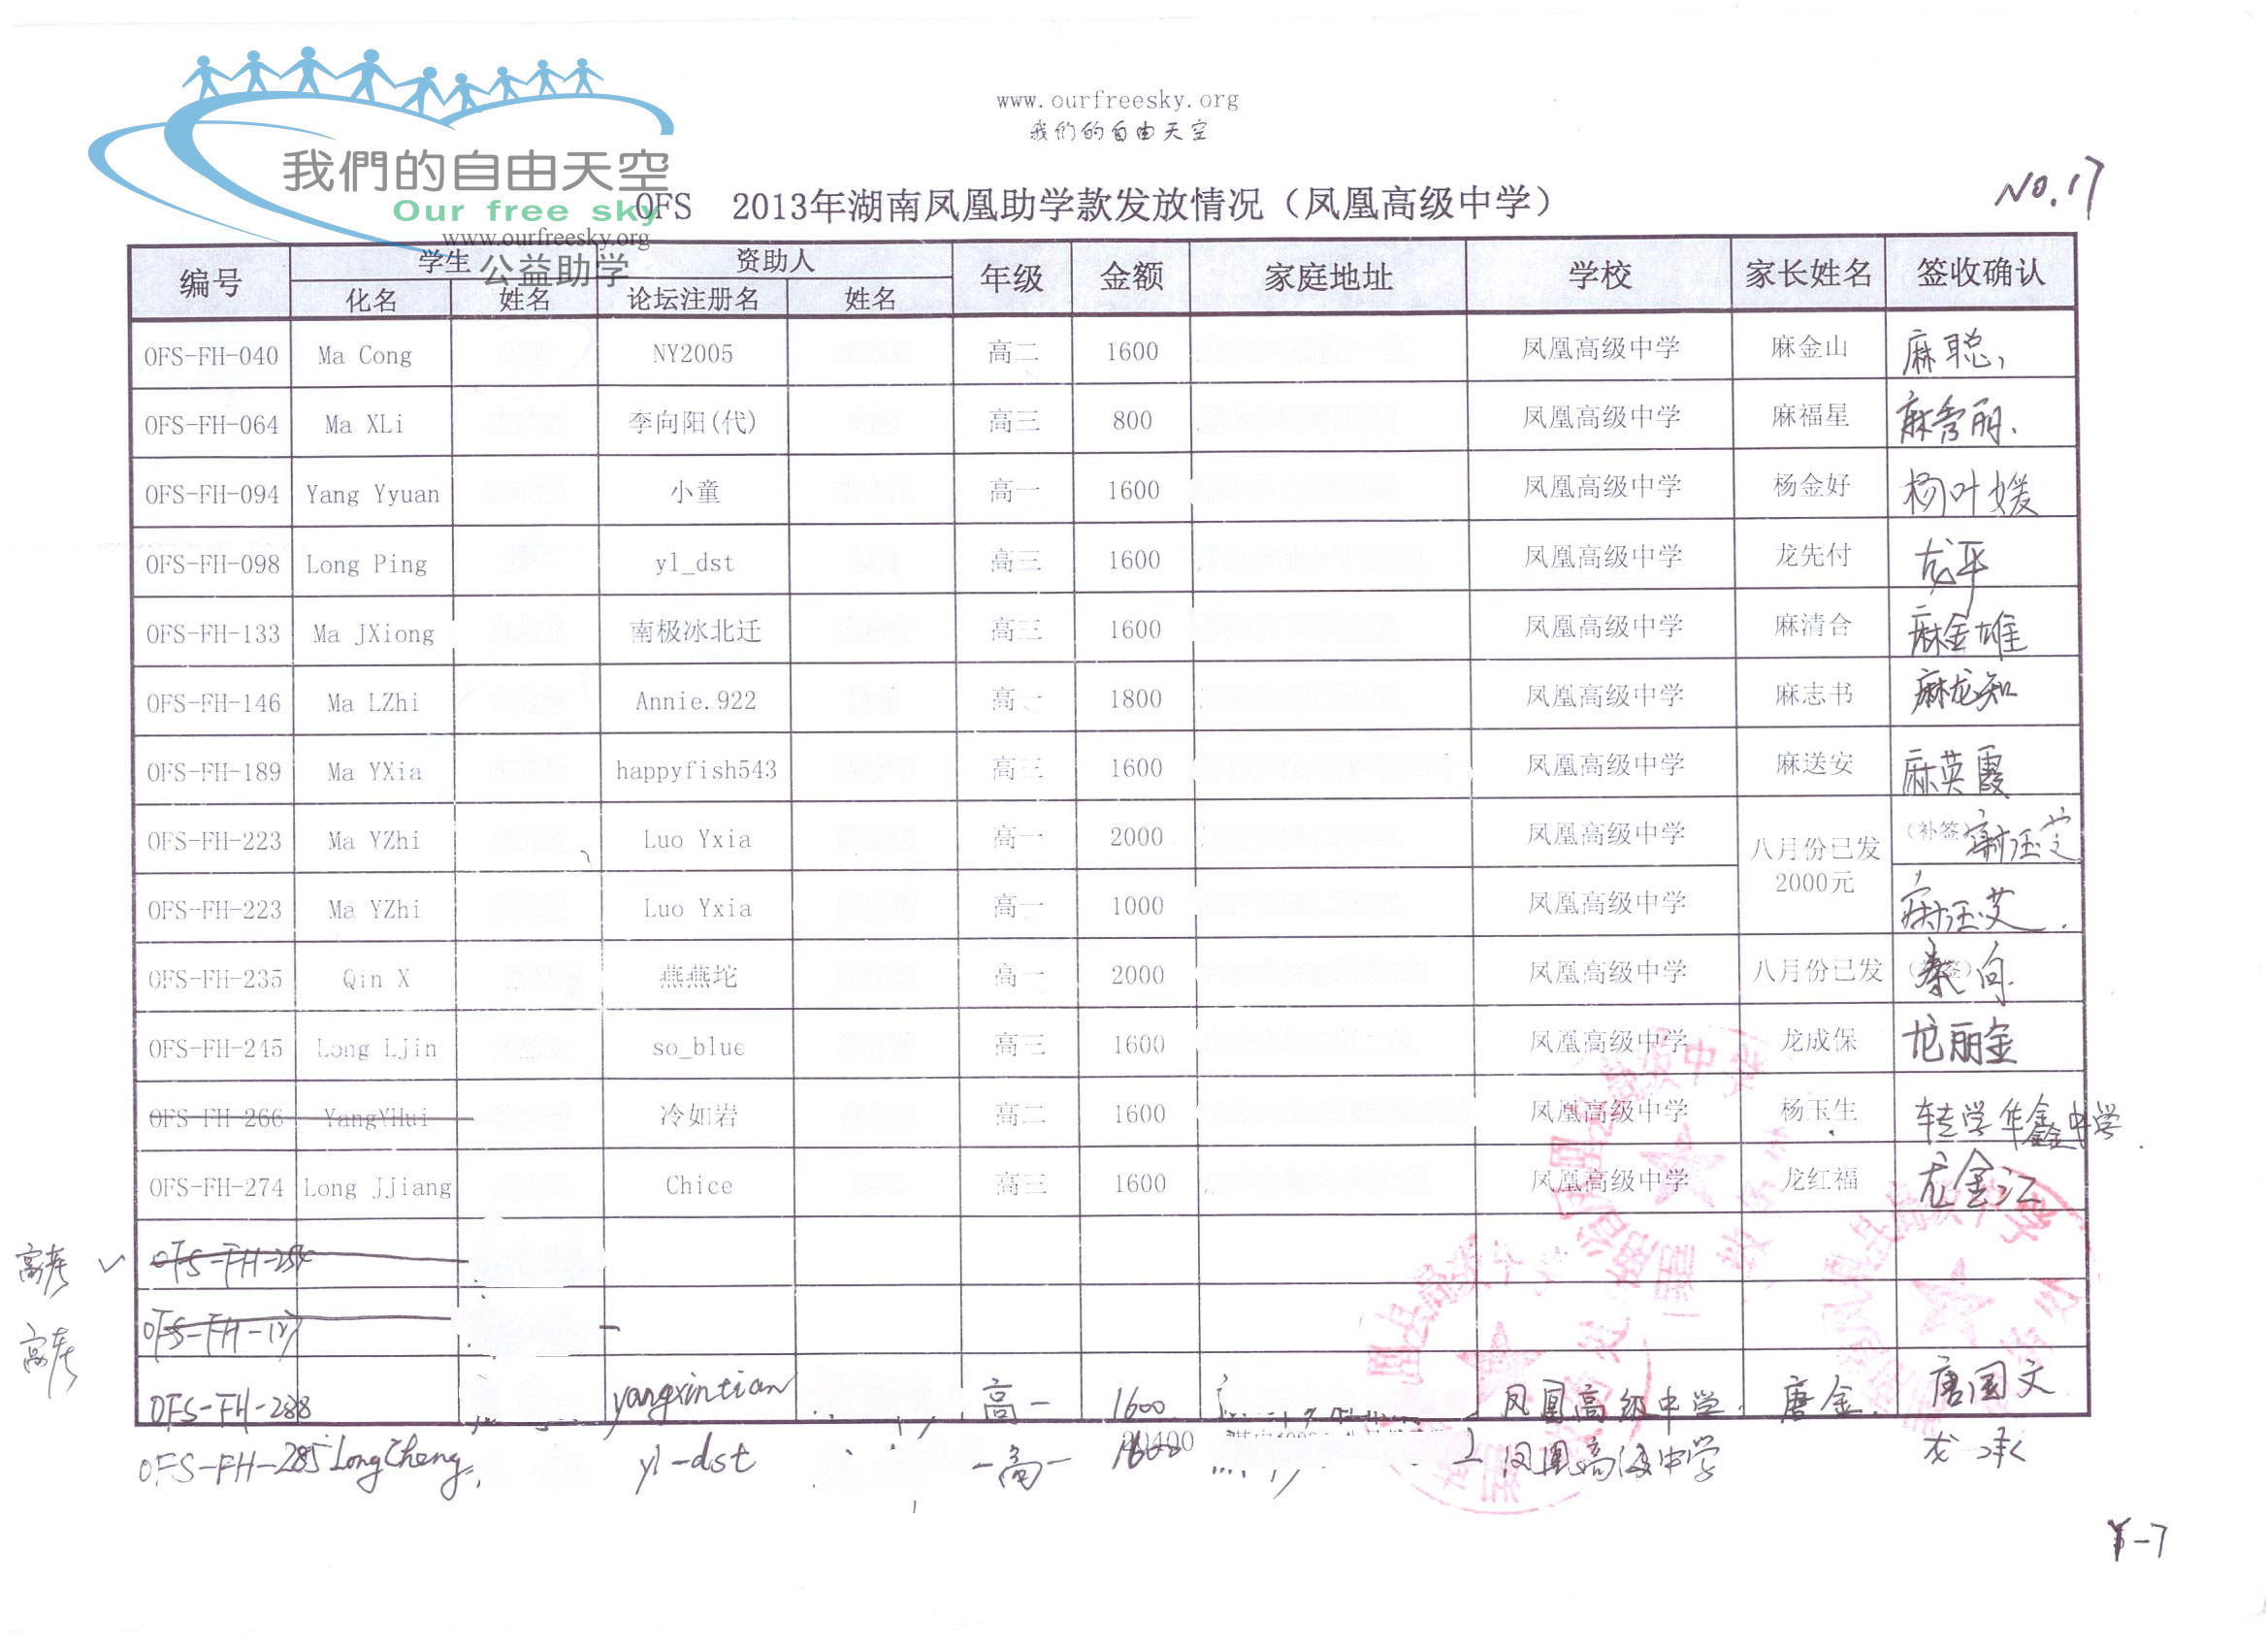 我們的自由天空
Our free sky
www.ourfreesky.org
公益助学
www.ourfreesky.org
我们的自由天空
NO.17
OFS 2013年湖南凤凰助学款发放情况（凤凰高级中学）
编号 学生 资助人 年级 金额 家庭地址 学校 家长姓名 签收确认
化名 姓名 论坛注册名 姓名
OFS-FH-040 Ma Cong NY2005 高二 1600 凤凰高级中学 麻金山 麻聪
OFS-FH-064 Ma XLi 李向阳(代) 高三 800 凤凰高级中学 麻福星 麻秀丽.
OFS-FH-094 Yang Yyuan 小童 高一 1600 凤凰高级中学 杨金好 杨叶媛
OFS-FH-098 Long Ping yl_dst 高三 1600 凤凰高级中学 龙先付 龙平
OFS-FH-133 Ma JXiong 南极冰北迁 高三 1600 凤凰高级中学 麻清合 麻金雄
OFS-FH-146 Ma LZhi Annie.922 高一 1800 凤凰高级中学 麻志书 麻龙知
OFS-FH-189 Ma YXia happyfish543 高三 1600 凤凰高级中学 麻送安 麻英霞
OFS-FH-223 Ma YZhi Luo Yxia 高一 2000 凤凰高级中学 八月份已发2000元 (补签)
OFS-FH-223 Ma YZhi Luo Yxia 高一 1000 凤凰高级中学
OFS-FH-235 Qin X 燕燕坨 高一 2000 凤凰高级中学 八月份已发 秦向
OFS-FH-245 Long Ljin so_blue 高三 1600 凤凰高级中学 龙成保 龙丽金
OFS-FH-266 YangYHui 冷如岩 高二 1600 凤凰高级中学 杨玉生 转学华鑫中学.
OFS-FH-274 Long Jjiang Chice 高三 1600 凤凰高级中学 龙红福 龙金江
高考 OFS-FH-254
高考 OFS-FH-127
OFS-FH-288 yangxintian 高一 1600 凤凰高级中学. 唐金. 唐国文
OFS-FH-285 LongCheng yl-dst 高一 1600 凤凰高级中学 龙承